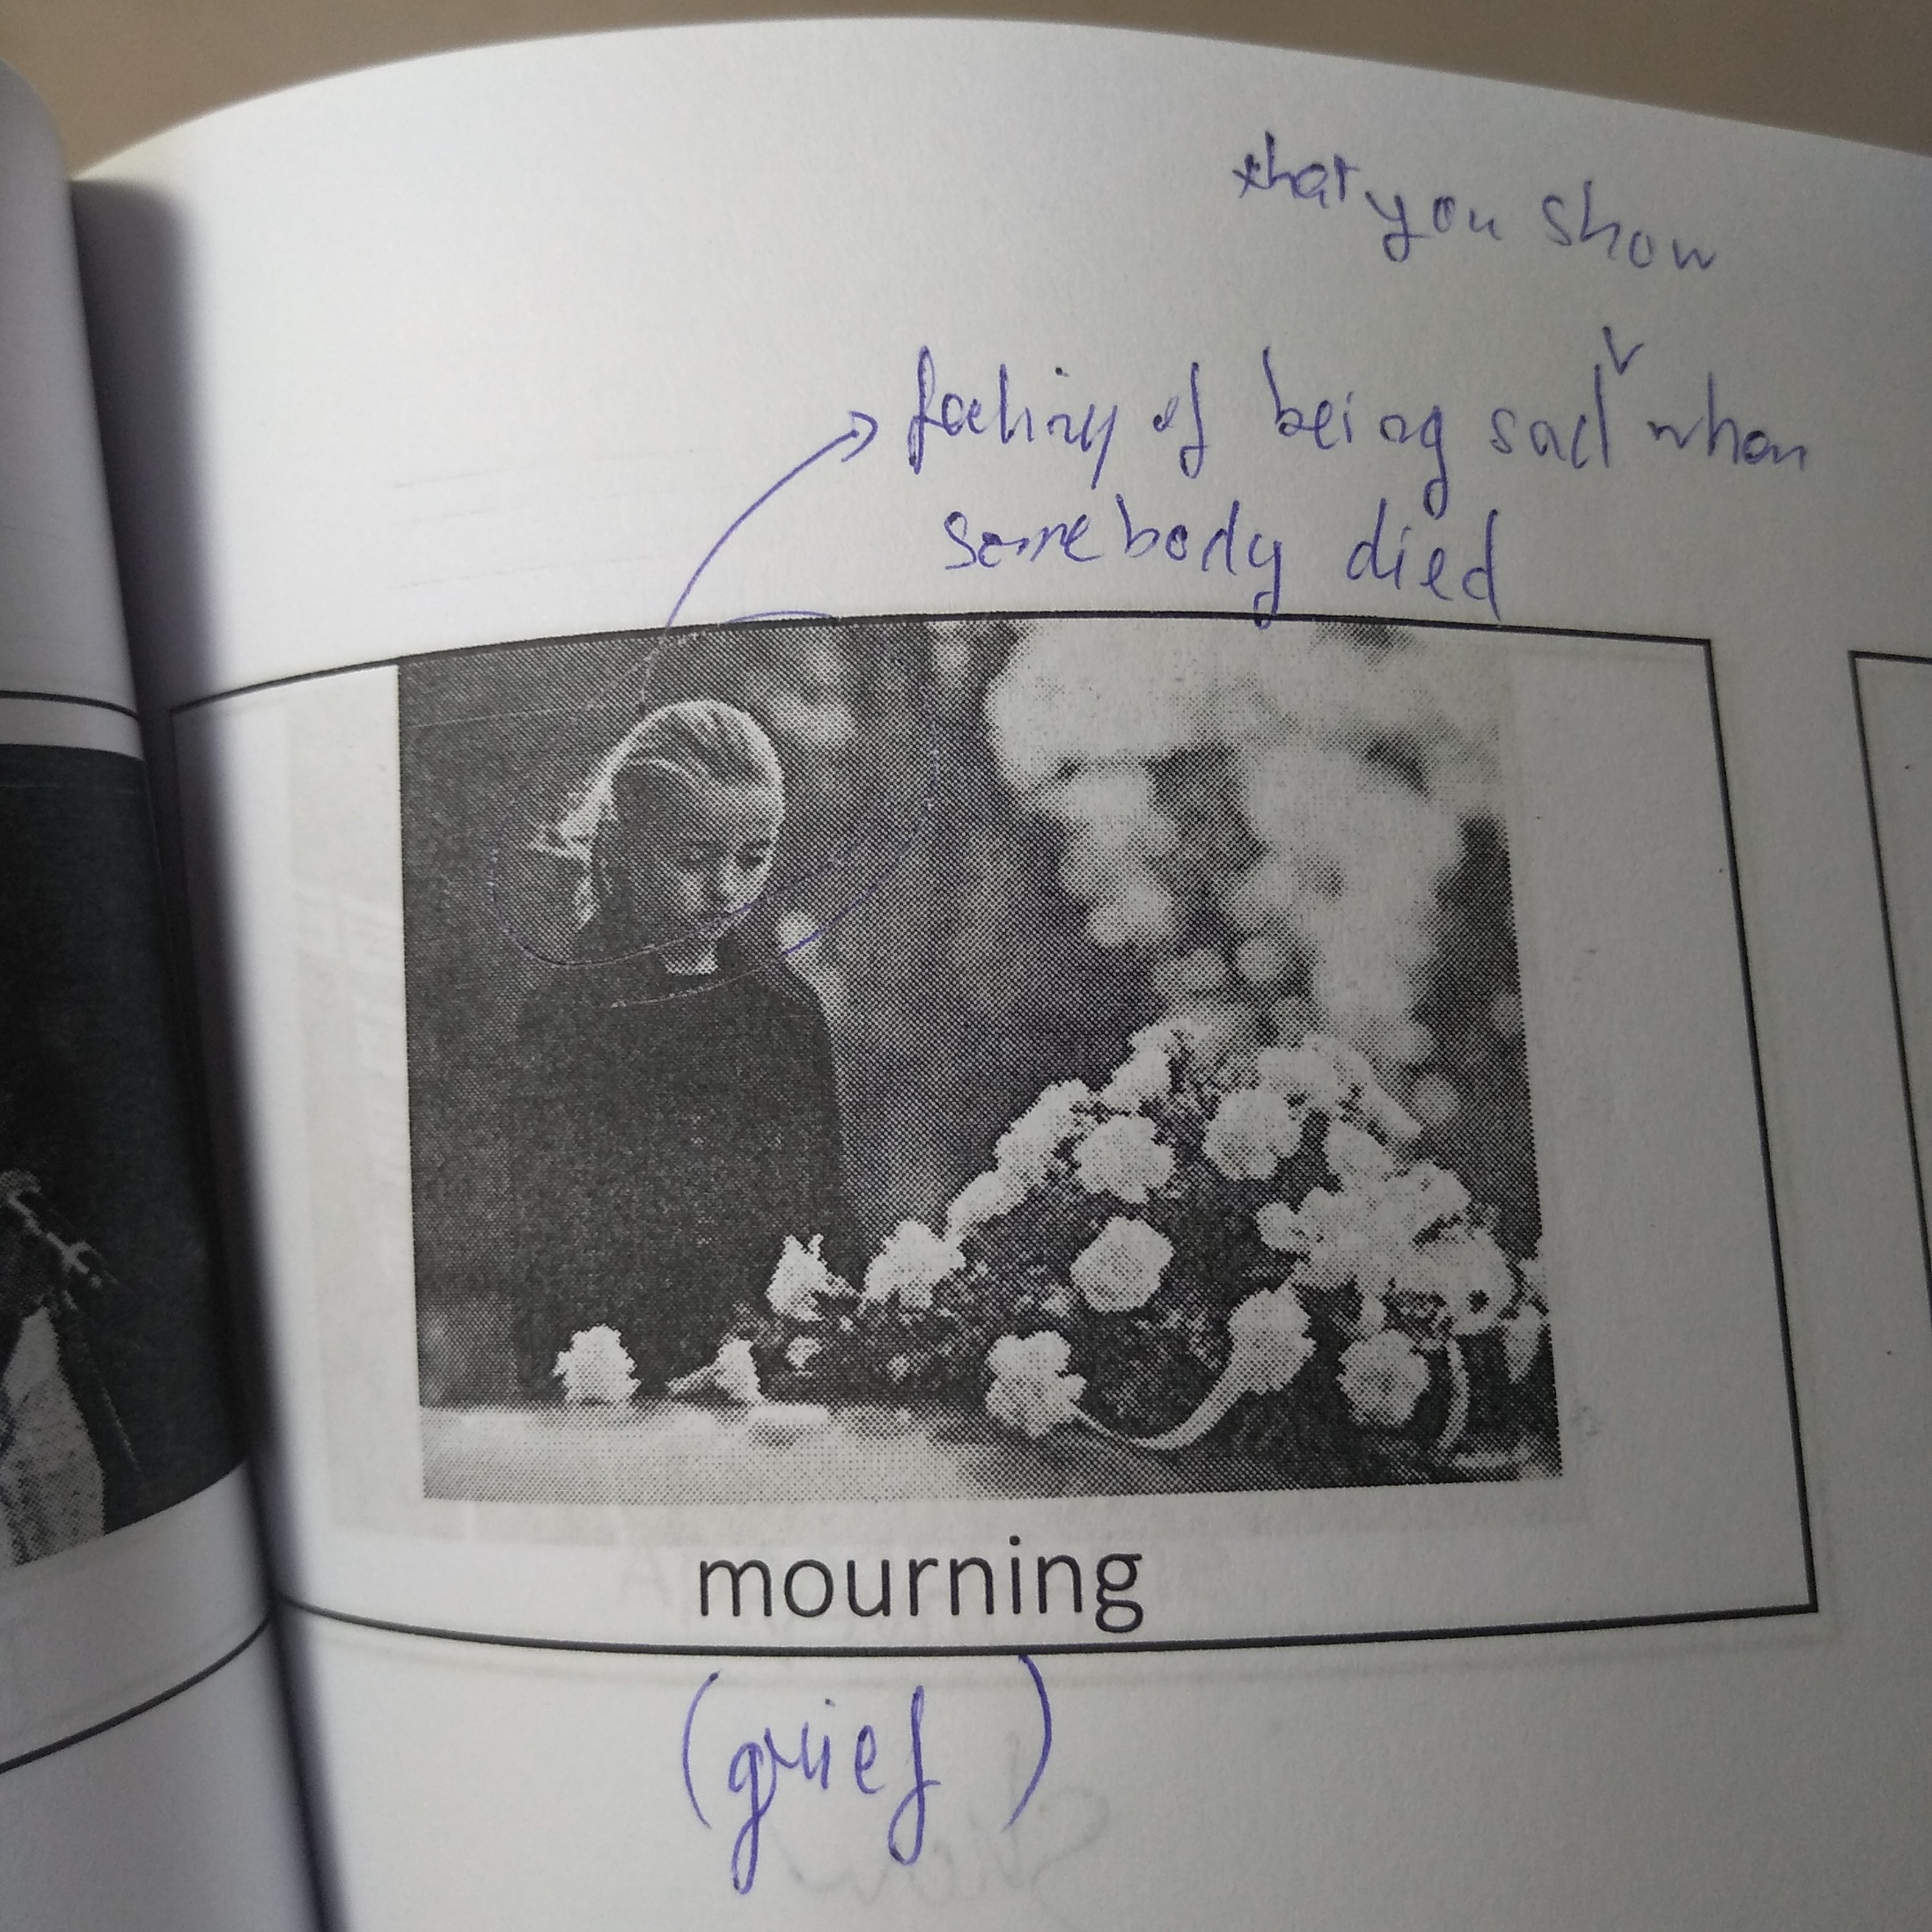 that you show
feeling of being sad when
somebody died
mourning
(grief)